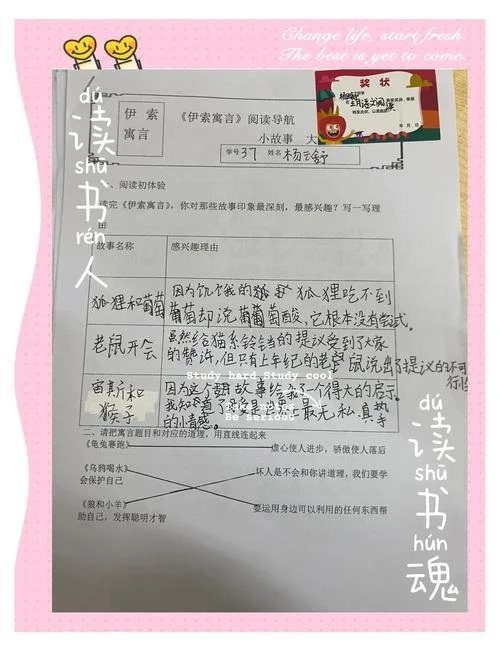 Change life, start fresh.
The best is yet to come.
dú
读
shū
书
rén
人
奖状
年 月 日
伊索
寓言
《伊索寓言》阅读导航
小故事 大
学号 37 姓名 杨云舒
一、阅读初体验
读完《伊索寓言》，你对那些故事印象最深刻，最感兴趣？写一写理
由
故事名称 感兴趣理由
狐狸和葡萄
因为饥饿的狐狸吃不到
葡萄却说葡萄酸，它根本没有尝试。
老鼠开会
虽然给猫系铃铛的提议受到了大家
的赞许，但只有上年纪的老鼠说出了提议的不可
行性
宙斯和
猴子
因为这个故事给我了个得大的启示。
我知道了母爱是世界上最无私真挚
的情感。
Study hard.Study cool
Take notes
Be serious
二、请把寓言题目和对应的道理，用直线连起来
《龟兔赛跑》 虚心使人进步，骄傲使人落后
《乌鸦喝水》 坏人是不会和你讲道理，我们要学
会保护自己
《狼和小羊》 要运用身边可以利用的任何东西帮
助自己，发挥聪明才智
dú
读
shū
书
hún
魂